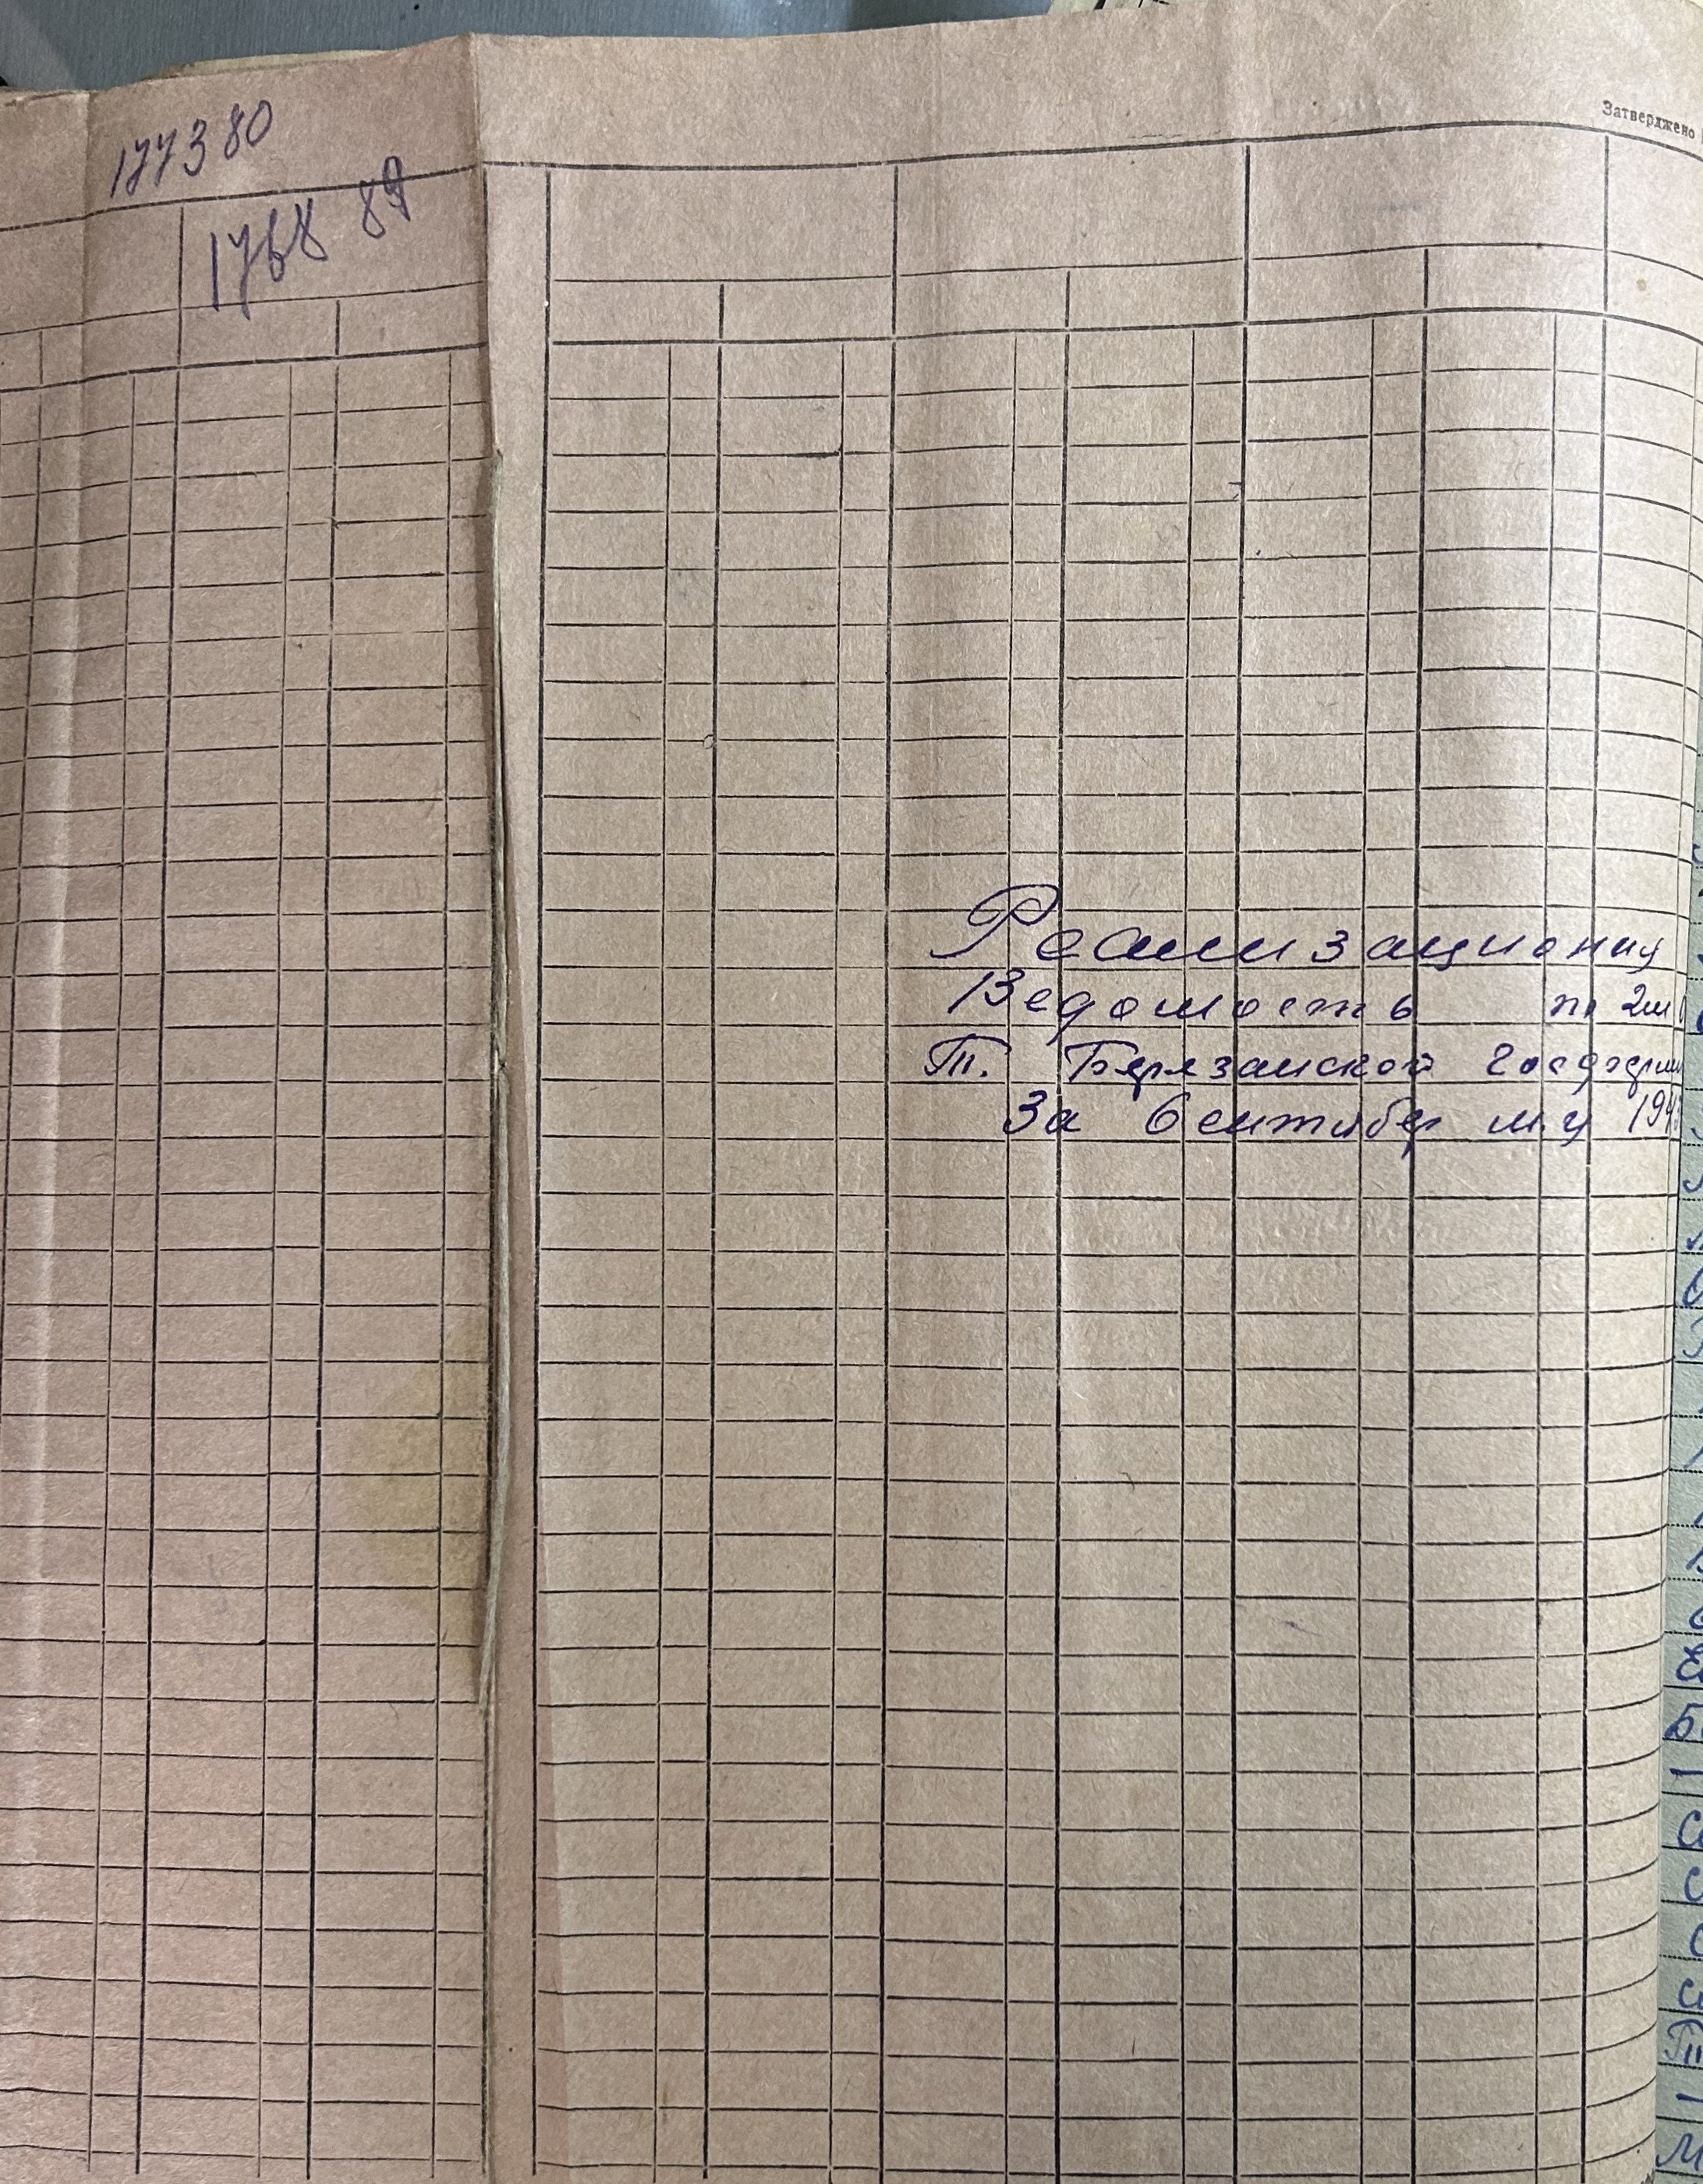 177380
1768 89
Затверджено
Реализационну
Ведомость по
Т. Березанской
За Сентябрь м-ц 194